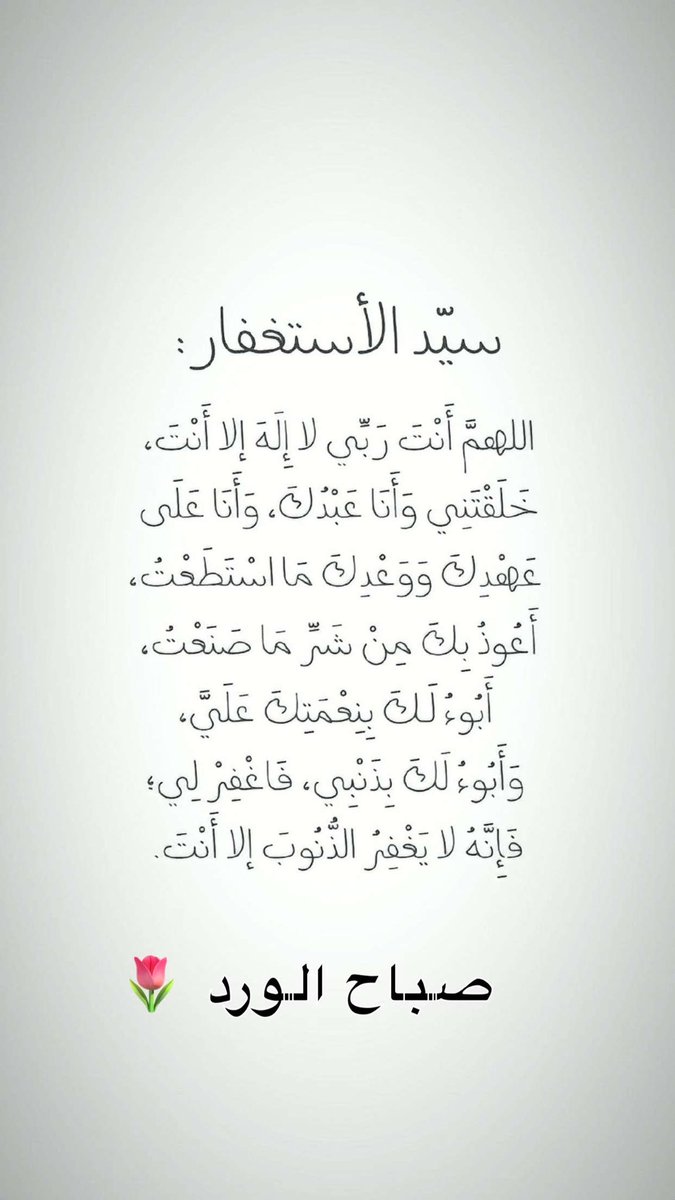 سيّد الأستغفار :
اللهمَّ أَنْتَ رَبِّي لا إِلَهَ إلا أَنْتَ،
خَلَقْتَنِي وَأَنَا عَبْدُكَ، وَأَنَا عَلَى
عَهْدِكَ وَوَعْدِكَ مَا اسْتَطَعْتُ،
أَعُوذُ بِكَ مِنْ شَرِّ مَا صَنَعْتُ،
أَبُوءُ لَكَ بِنِعْمَتِكَ عَلَيَّ،
وَأَبُوءُ لَكَ بِذَنْبِي، فَاغْفِرْ لِي؛
فَإِنَّهُ لا يَغْفِرُ الذُّنُوبَ إلا أَنْتَ.
صباح الورد 🌷